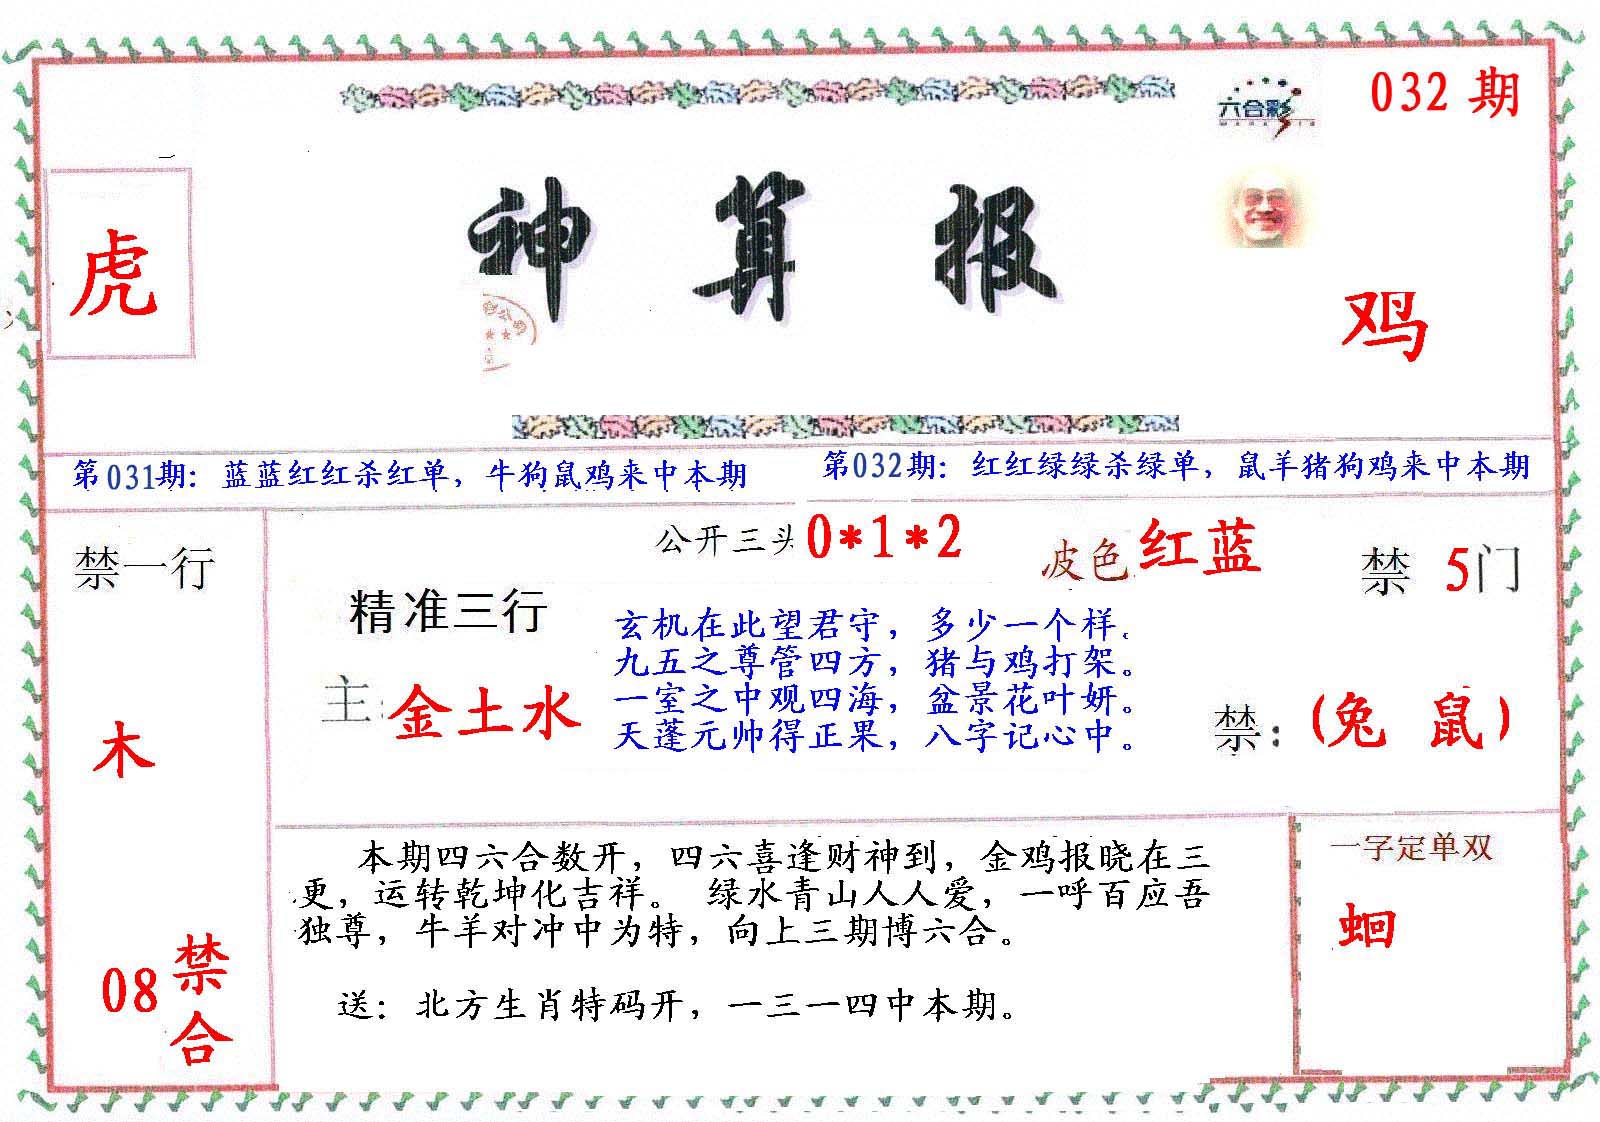 六合彩
032 期
虎
神算报
鸡
第031期：蓝蓝红红杀红单，牛狗鼠鸡来中本期
第032期：红红绿绿杀绿单，鼠羊猪狗鸡来中本期
禁一行
木
08 禁合
公开三头 0*1*2
波色 红蓝
禁 5门
精准三行
主：金土水
玄机在此望君守，多少一个样。
九五之尊管四方，猪与鸡打架。
一室之中观四海，盆景花叶妍。
天蓬元帅得正果，八字记心中。
禁：(兔 鼠)
本期四六合数开，四六喜逢财神到，金鸡报晓在三
更，运转乾坤化吉祥。 绿水青山人人爱，一呼百应吾
独尊，牛羊对冲中为特，向上三期博六合。
送：北方生肖特码开，一三一四中本期。
一字定单双
蛔